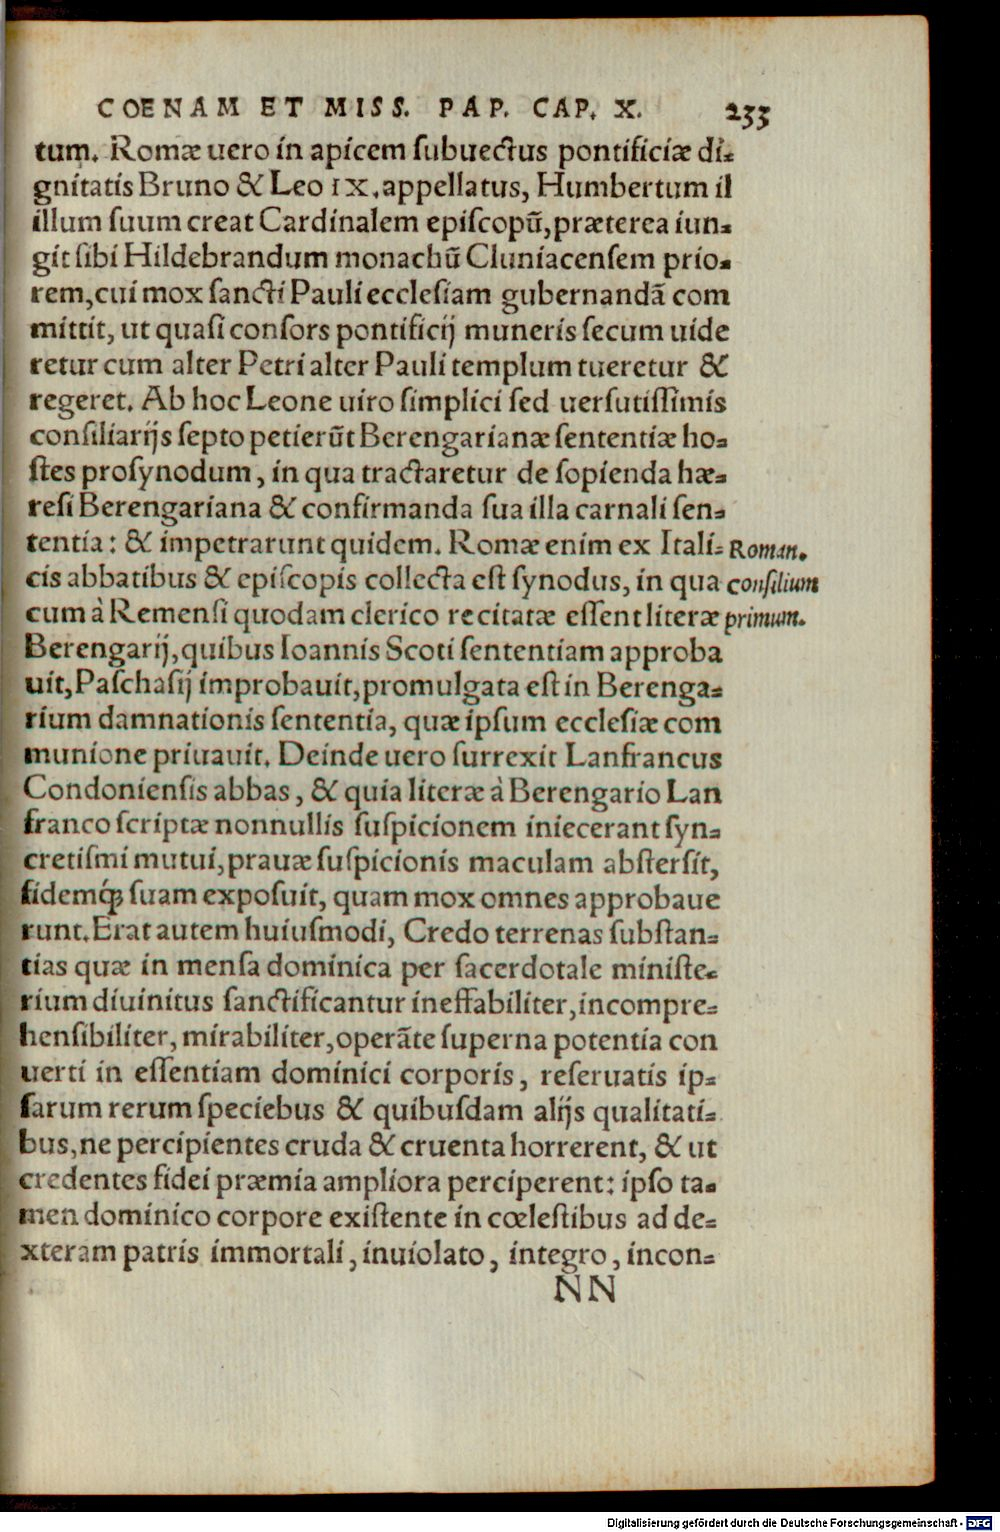 COENAM ET MISS. PAP. CAP. X. 233
tum. Romæ uero in apicem subuectus pontificiæ di-
gnitatis Bruno & Leo IX. appellatus, Humbertum il
illum suum creat Cardinalem episcopū, præterea iun-
git sibi Hildebrandum monachū Cluniacensem prio-
rem, cui mox sancti Pauli ecclesiam gubernandā com
mittit, ut quasi consors pontificij muneris secum uide
retur cum alter Petri alter Pauli templum tueretur &
regeret. Ab hoc Leone uiro simplici sed uersutissimis
consiliarijs septo petierūt Berengarianæ sententiæ ho-
stes pro synodum, in qua tractaretur de sopienda hæ-
resi Berengariana & confirmanda sua illa carnali sen-
tentia: & impetrarunt quidem. Romæ enim ex Itali- Roman.
cis abbatibus & episcopis collecta est synodus, in qua consilium
cum à Remensi quodam clerico recitatæ essent literæ primum.
Berengarij, quibus Ioannis Scoti sententiam approba
uit, Paschasij improbauit, promulgata est in Berenga-
rium damnationis sententia, quæ ipsum ecclesiæ com
munione priuauit. Deinde uero surrexit Lanfrancus
Condoniensis abbas, & quia literæ à Berengario Lan
franco scriptæ nonnullis suspicionem iniecerant syn-
cretismi mutui, prauæ suspicionis maculam abstersit,
fidemq́ꝫ suam exposuit, quam mox omnes approbaue
runt. Erat autem huiusmodi, Credo terrenas substan-
tias quæ in mensa dominica per sacerdotale ministe-
rium diuinitus sanctificantur ineffabiliter, incompre-
hensibiliter, mirabiliter, operāte superna potentia con
uerti in essentiam dominici corporis, reseruatis ip-
sarum rerum speciebus & quibusdam alijs qualitati-
bus, ne percipientes cruda & cruenta horrerent, & ut
credentes fidei præmia ampliora perciperent: ipso ta-
men dominico corpore existente in cœlestibus ad de-
xteram patris immortali, inuiolato, integro, incon-
NN
Digitalisierung gefördert durch die Deutsche Forschungsgemeinschaft - DFG